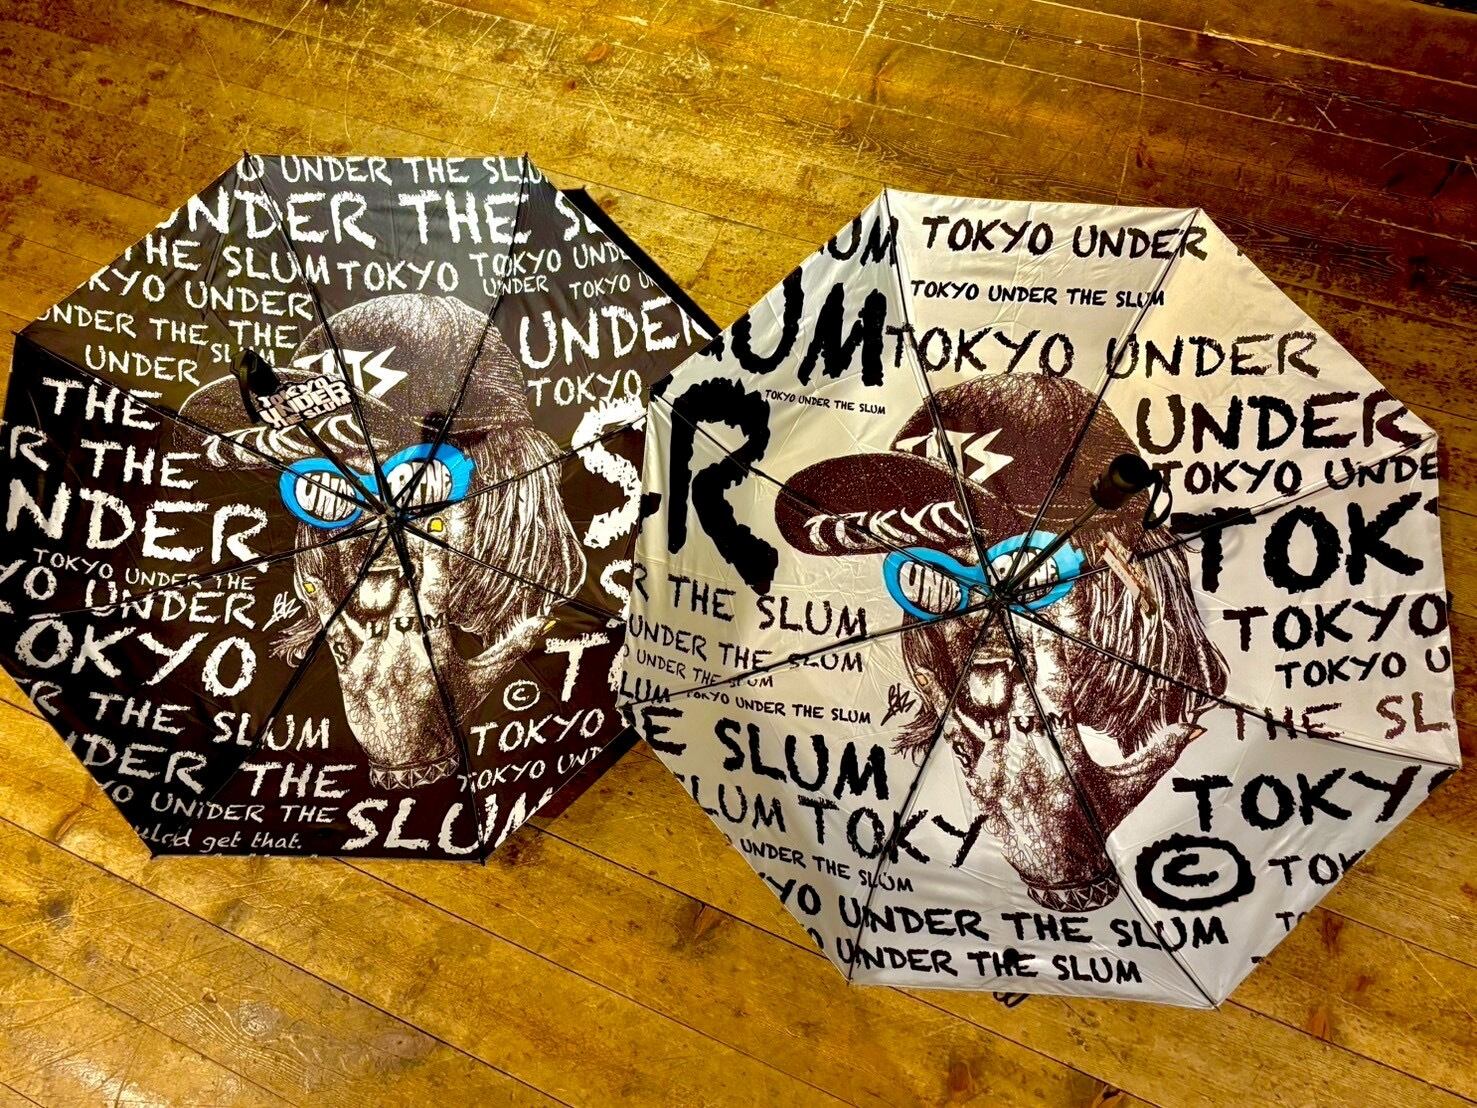 O UNDER THE SLU
UNDER THE S
THE SLUM TOKYO TOKYO UNDE
KYO UNDER UNDER TOKYO U
UNDER THE THE UNDER
UNDER SLUM TOKYO
TATS
TOKYO
TOKYO
UNDER
SLUM
THE
R THE
NDER
TOKYO UNDER THE
YO UNDER
TOKYO
SLUM
S
ER THE SLUM
NDER THE
YO UNDER THE SLUM
ld get that.
©
TOKYO
TOKYO UND
LUM TOKYO UNDER
TOKYO UNDER THE SLUM
UM TOKYO UNDER
TOKYO UNDER THE SLUM
R
UNDER
TOKYO UNDE
TOK
TOKYO
TOKYO U
THE SL
TOKY
© TOK
TATS
TOKYO
R THE SLUM
UNDER THE SLUM
O UNDER THE SLUM
SLUM TOKYO UNDER THE SLUM
E SLUM
SLUM TOKY
UNDER THE SLUM
YO UNDER THE SLUM
O UNDER THE SLUM
SLUM